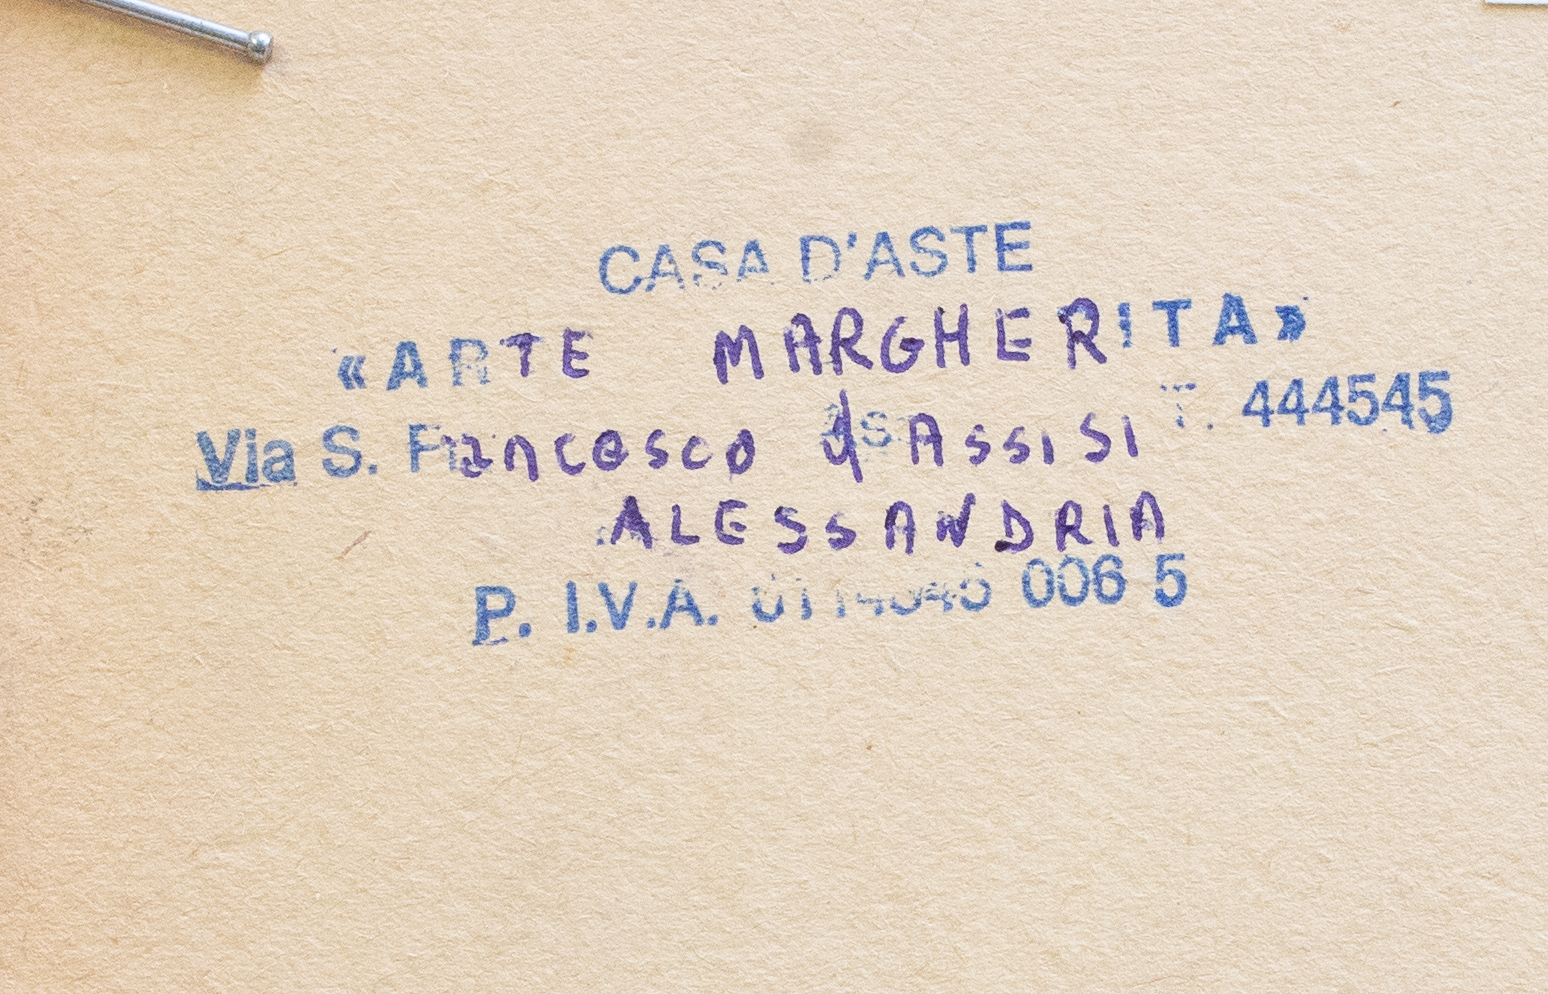 CASA D'ASTE
«ARTE MARGHERITA»
Via S. Francesco d'Assisi T. 444545
ALESSANDRIA
P. I.V.A. 006 5